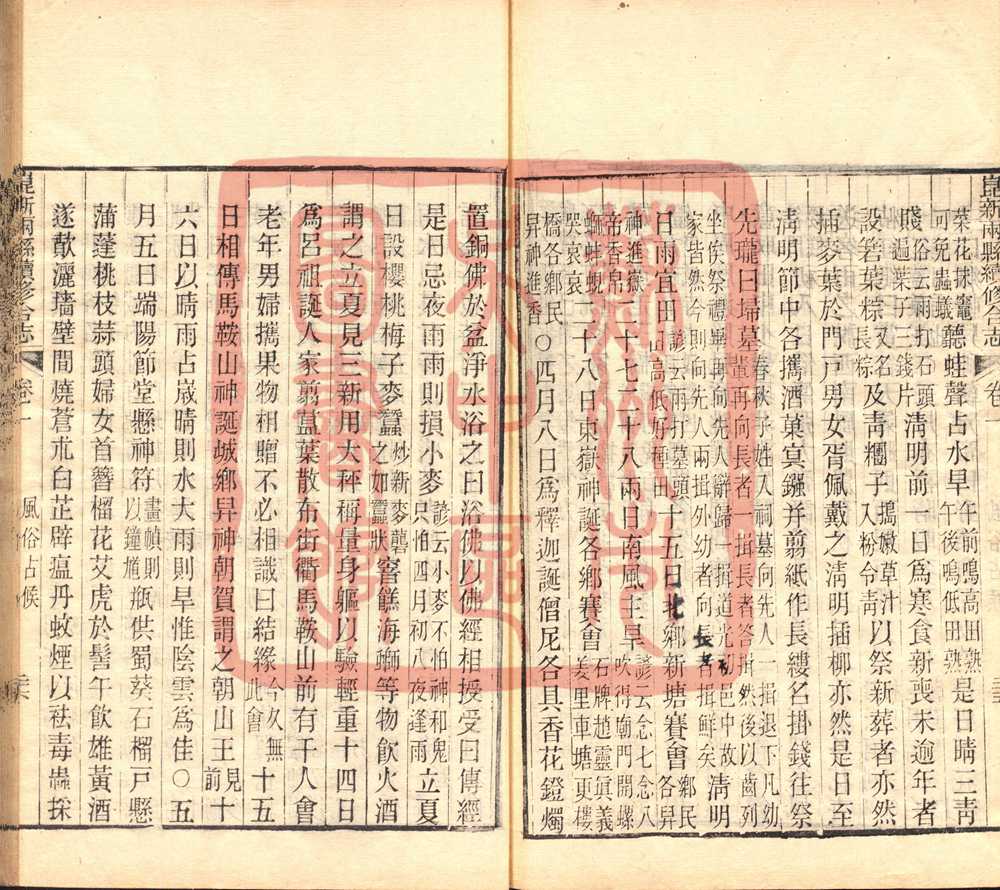 崑新兩縣續修合志 卷一
菜花抹竈可免蟲蟻聽蛙聲占水旱午前鳴高田熟午後鳴低田熟是日晴三靑
賤俗云雨打石頭遍葉子三錢片淸明前一日爲寒食新喪未逾年者
設箬葉粽又名長粽及靑糰子搗嫩草汁入粉令靑以祭新葬者亦然
插麥葉於門戸男女胥佩戴之淸明插柳亦然是日至
淸明節中各攜酒菓寘鏹并翦紙作長縷名掛錢往祭
先壠曰埽墓春秋子姓入祠墓向先人一揖退下凡幼輩再向長者一揖長者答揖然後以齒列
坐俟祭禮畢再向先人辭歸一揖道光初邑中故家皆然今則向先人兩揖外幼者向長者揖鮮矣淸明
日雨宜田諺云雨打墓頭田高低好種田十五日北鄕新塘賽會鄕民各昇
神進嶽帝香帛二十七二十八兩日南風主旱諺云念七念八吹得廟門開螺
螄蚌蜆哭哀哀二十八日東嶽神誕各鄕賽會石牌趙靈眞義姜里車塘更樓
橋各鄕民昇神進香〇四月八日爲釋迦誕僧尼各具香花鐙燭
置銅佛於盆淨水浴之曰浴佛以佛經相授受曰傳經
是日忌夜雨雨則損小麥諺云小麥不怕神和鬼只怕四月初八夜逢雨立夏
日設櫻桃梅子麥蠶炒新麥礱之如蠶狀窨餻海螄等物飮火酒
謂之立夏見三新用大秤稱量身軀以驗輕重十四日
爲呂祖誕人家翦葢葉散布街衢馬鞍山前有千人會
老年男婦攜果物相贈不必相識曰結緣今久無此會十五
日相傳馬鞍山神誕城鄕昇神朝賀謂之朝山王見前十
六日以晴雨占歲晴則水大雨則旱惟陰雲爲佳〇五
月五日端陽節堂懸神符畫幀則以鐘馗瓶供蜀葵石榴戸懸
蒲蓬桃枝蒜頭婦女首簪榴花艾虎於髻午飮雄黃酒
遂歕灑墻壁間燒蒼朮白芷辟瘟丹蚊煙以祛毒蟲採
崑新兩縣續修合志 卷一 風俗占候